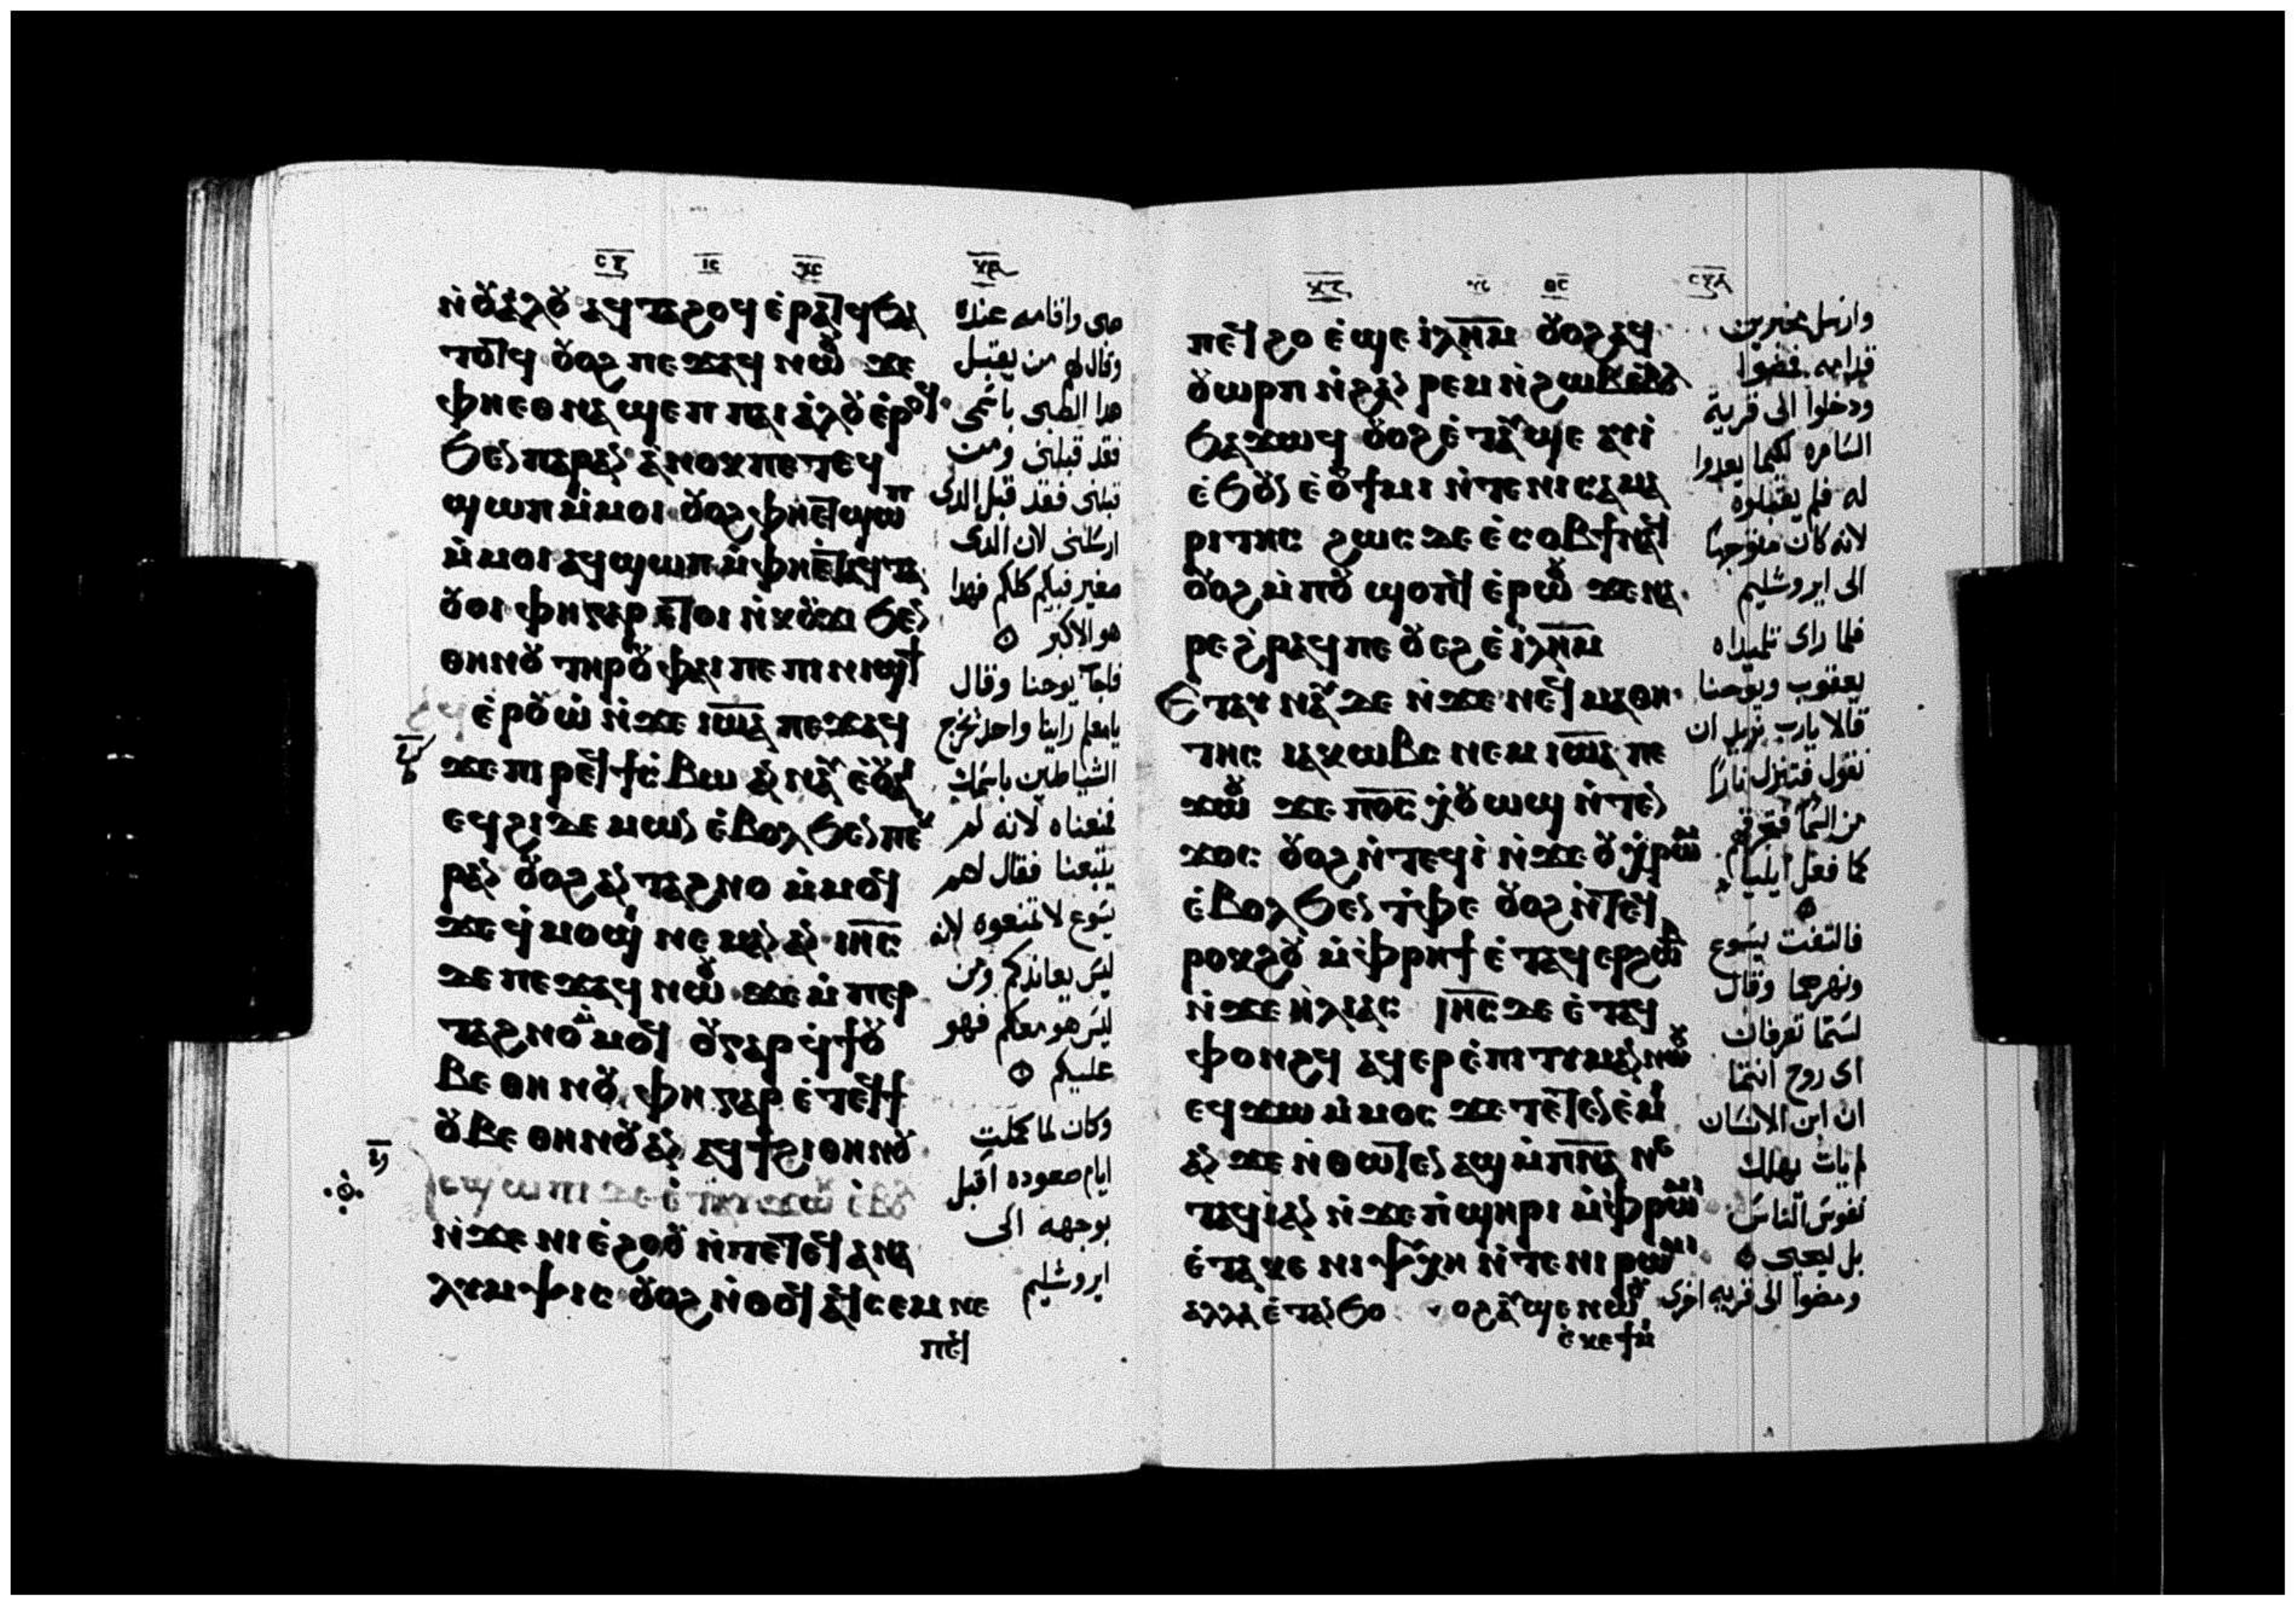 ⲥⲅ ⲓⲥ ⲭⲥ
ⲛ̀ⲟⲩⲁ̀ⲗⲟⲩ ⲁϥⲧⲁϩⲟϥ ⲉ̀ⲣⲁⲧϥ ϧⲁ
ⲧⲟⲧϥ ⲟⲩⲟϩ ⲡⲉϫⲁϥ ⲛⲱⲟⲩ ϫⲉ
ⲫⲏⲉⲑⲛⲁϣⲉⲡ ⲡⲁⲓⲁ̀ⲗⲟⲩ ⲉ̀ⲣⲟϥ
ϧⲉⲛⲡⲁⲣⲁⲛ ⲁ̀ⲛⲟⲕ ⲡⲉⲧⲉϥ
ϣⲱⲡ ⲙ̀ⲙⲟⲓ ⲟⲩⲟϩ ⲫⲏⲉⲧϣⲱⲡ
ⲙ̀ⲙⲟⲓ ⲁϥϣⲱⲡ ⲙ̀ⲫⲏⲉ̀ⲧⲁϥⲧⲁ
ⲟⲩⲟⲓ ⲫⲏⲅⲁⲣ ⲉⲧⲟⲓ ⲛ̀ⲕⲟⲩϫⲓ ϧⲉⲛ
ⲑⲏⲛⲟⲩ ⲧⲏⲣⲟⲩ ⲫⲁⲓ ⲡⲉ ⲡⲓⲛⲓϣϯ
ⲁϥⲉ̀ⲣⲟⲩⲱ̀ ⲛ̀ϫⲉ ⲓⲱⲁ ⲡⲉϫⲁϥ
ϫⲉ ⲡⲓⲣⲉϥϯⲥ̀ⲃⲱ ⲁⲛⲛⲁⲩ ⲉ̀ⲟⲩⲁⲓ
ⲉϥϩⲓⲇⲉⲙⲱⲛ ⲉ̀ⲃⲟⲗ ϧⲉⲛⲡⲉⲕ
ⲣⲁⲛ ⲟⲩⲟϩ ⲁⲛⲧⲁϩⲛⲟ ⲙ̀ⲙⲟϥ
ϫⲉ ϥ̀ⲙⲟϣⲓ ⲛⲉⲙⲁⲛ ⲁⲛ ⲓⲏⲥ
ⲇⲉ ⲡⲉϫⲁϥ ⲛⲱⲟⲩ ϫⲉ ⲙ̀ⲡⲉⲣ
ⲧⲁϩⲛⲟ ⲙ̀ⲙⲟϥ ⲟⲩⲅⲁⲣ ϥ̀ϯⲟⲩ
ⲃⲉ ⲑⲏⲛⲟⲩ ⲫⲏ ⲅⲁⲣ ⲉ̀ⲧⲉϥϯ
ⲟⲩⲃⲉ ⲑⲏⲛⲟⲩ ⲁⲛ ⲁϥϯϩⲓⲑⲏⲛⲟⲩ
ⲁⲥϣⲱⲡⲓ ⲇⲉ ⲉ̀ⲧⲁⲩϫⲱⲕ ⲉ̀ⲃⲟⲗ
ⲛ̀ϫⲉ ⲛⲓⲉ̀ϩⲟⲟⲩ ⲛ̀ⲧⲉⲧⲉϥⲁⲛⲁ
ⲗⲩⲙⲯⲓⲥ ⲟⲩⲟϩ ⲛ̀ⲑⲟϥ ⲁϥⲥⲉⲙⲛⲉ
ⲡⲉϥ
صبى واقامه عنده
وقال لهم من يقبل
هذا الصبى باسمى
فقد قبلنى ومن
قبلنى فقد قبل الدى
ارسلنى لان الدى
صغير فيكم كلكم فهدا
هو الاكبر
فاجاب يوحنا وقال
يامعلم راينا واحد يخرج
الشياطين باسمك
فمنعناه لانه لم
يتبعنا فقال لهم
يسوع لا تمنعوه لانه
ليس يعاندكم ومن
ليس هو معكم فهو
عليكم
وكان لما كملت
ايام صعوده اقبل
بوجهه الى
ايروشليم
ⲡⲉϥϩⲟ ⲉ̀ϣⲉ ⲓ̀ⲗⲏⲙ ⲟⲩⲟϩ ⲁϥ
ⲟⲩⲱⲣⲡ ⲛ̀ϩⲁⲛ ⲣⲉⲙⲛ̀ϩⲱⲃ ⲉ̀ⲃⲟⲗ
ϧⲁϫⲱϥ ⲟⲩⲟϩ ⲉ̀ⲧⲁⲩϣⲉ ⲁⲩⲓ
ⲉ̀ϧⲟⲩⲛ ⲉ̀ⲟⲩϯⲙⲓ ⲛ̀ⲧⲉⲛⲓⲥⲁⲙⲁ
ⲣⲓⲧⲏⲥ ϩⲱⲥ ⲇⲉ ⲉ̀ⲥⲟⲃϯⲛⲁϥ
ⲟⲩⲟϩ ⲙ̀ⲡⲟⲩϣⲟⲡϥ ⲉ̀ⲣⲱⲟⲩ ϫⲉⲛⲁ
ⲣⲉ ϩ̀ⲣⲁϥ ⲡⲉ ⲟⲩⲉϩ ⲉ̀ⲓ̀ⲗⲏⲙ
Ⲉ̀ⲧⲁⲩⲛⲁⲩ ⲇⲉ ⲛ̀ϫⲉ ⲛⲉϥⲙⲁⲑⲏ
ⲧⲏⲥ ⲓⲁⲕⲱⲃⲥ ⲛⲉⲙ ⲓⲱⲁ ⲡⲉ
ϫⲱⲟⲩ ϫⲉ ⲡⲟⲥ ⲭ̀ⲟⲩⲱϣ ⲛ̀ⲧⲉⲛ
ϫⲟⲥ ⲟⲩⲟϩ ⲛ̀ⲧⲉϥⲓ̀ ⲛ̀ϫⲉ ⲟⲩⲭ̀ⲣⲱⲙ
ⲉ̀ⲃⲟⲗ ϧⲉⲛ ⲧ̀ⲫⲉ ⲟⲩⲟϩ ⲛ̀ⲧⲉϥ
ⲣⲟⲕϩⲟⲩ ⲙ̀ⲫ̀ⲣⲏϯ ⲉ̀ⲧⲁϥⲉⲣϩⲱⲃ
ⲛ̀ϫⲉ ⲏ̀ⲗⲓⲁⲥ ⲓⲏⲥ ⲇⲉ ⲉ̀ⲧⲁϥ
ⲫⲟⲛϩϥ ⲁϥⲉⲣⲉ̀ⲡⲓⲧⲓⲙⲁⲛ ⲛⲱⲟⲩ
ⲉϥϫⲱ ⲙ̀ⲙⲟⲥ ϫⲉ ⲧⲉⲧⲉⲛⲉ̀ⲙⲓ
ⲁⲛ ϫⲉ ⲛ̀ⲑⲱⲧⲉⲛ ⲁϣ ⲙ̀ⲡⲛⲁ ⲛⲉ
ⲧⲁϥⲓ̀ ⲁⲛ ⲛ̀ϫⲉ ⲡ̀ϣⲏⲣⲓ ⲙ̀ⲫ̀ⲣⲱⲙⲓ
ⲉ̀ⲧⲁⲕⲉ ⲛⲓⲯⲩⲭⲏ ⲛ̀ⲧⲉ ⲛⲓⲣⲱⲙⲓ
ⲁⲗⲗⲁ ⲉ̀ⲧⲁⲛϧⲟ ⲟⲩⲟϩ ⲁⲩϣⲉ ⲛⲱⲟⲩ
ⲉ̀ⲕⲉϯⲙⲓ
وارسل مخبرين
قدامه فمضوا
ودخلوا الى قرية
السامره لكيما يعدوا
له فلم يقبلوه
لانه كان متوجها
الى ايروشليم
فلما راى تلميداه
يعقوب ويوحنا
قالا يارب تريد ان
نقول فتنزل نارا
من السما فتحرقهم
كما فعل ايليا
فالتفت يسوع
ونهرهما وقال
لستما تعرفان
اى روح انتما
ان ابن الانسان
لم يات يهلك
نفوس الناس
بل ليحيى
ومضوا الى قريه اخرى